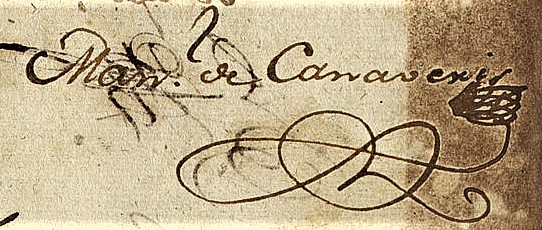 Man.l de Canaveris